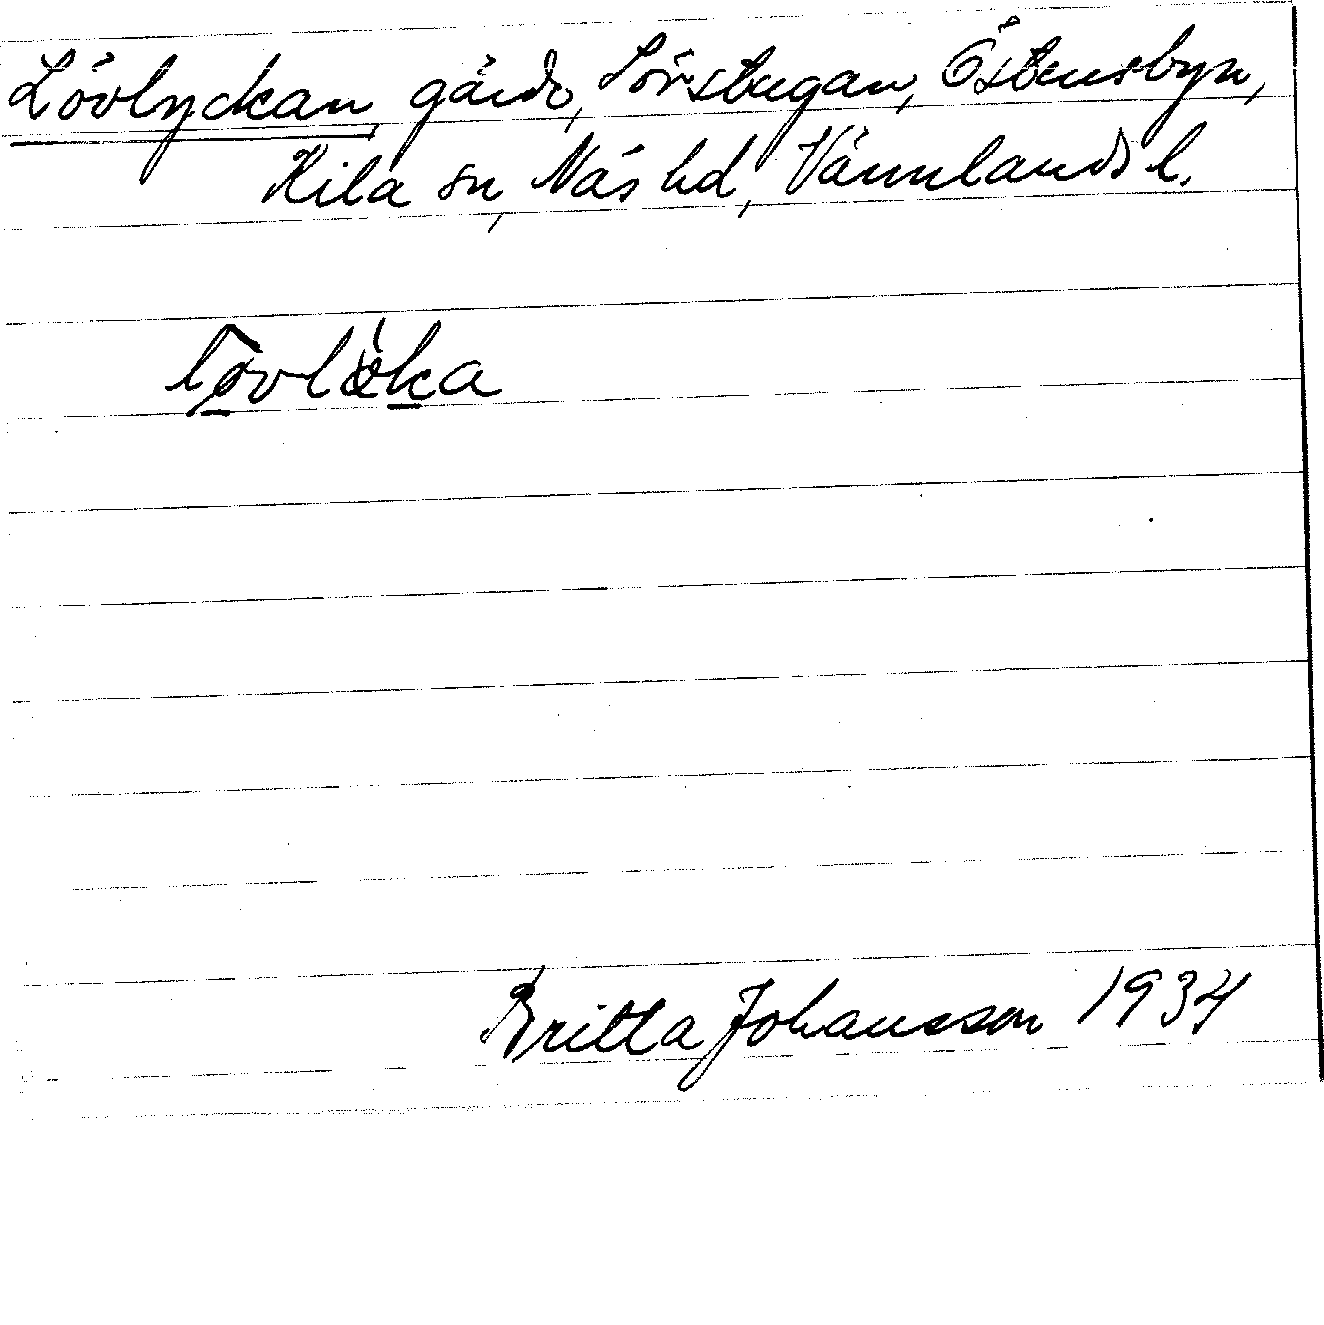 Lövlyckan, gärde, Sörstugan, Östensbyn,
Kila sn, Näs hd, Värmlands l.
Britta Johansson 1934